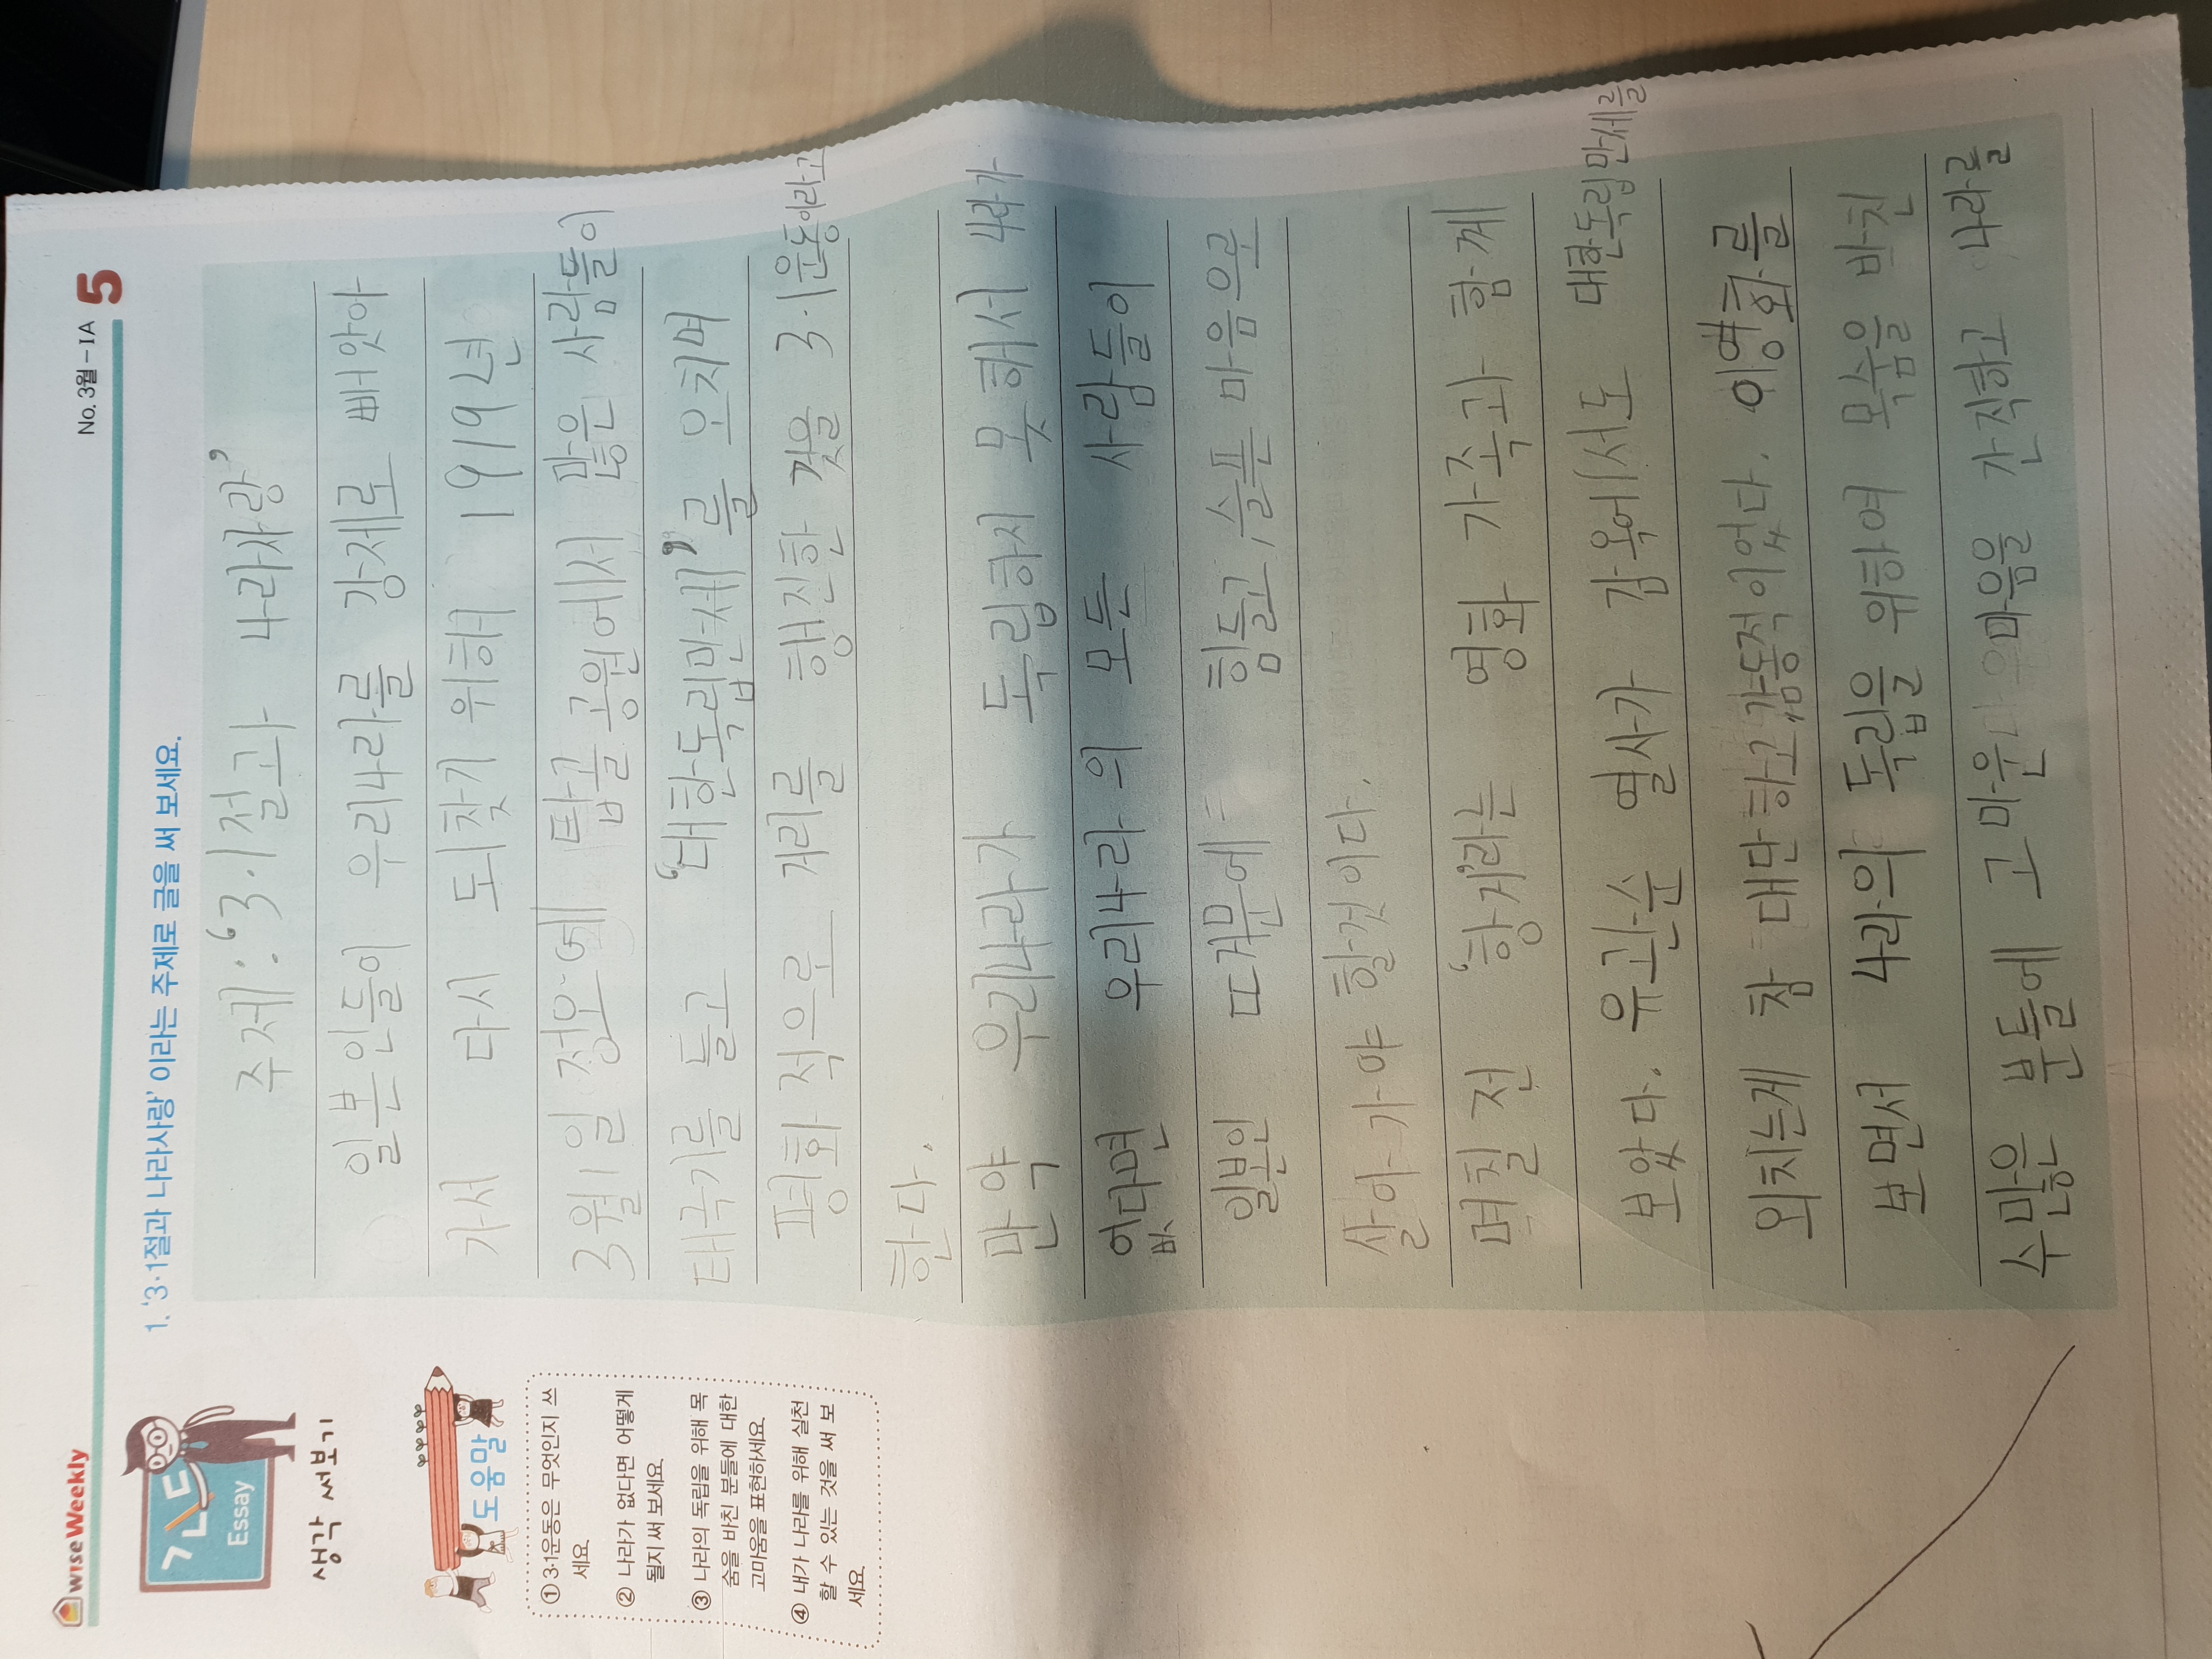 wise Weekly
No. 3월 - 1A 5
Essay
생각 써보기
1. '3·1절과 나라사랑' 이라는 주제로 글을 써 보세요.
도움말
① 3·1운동은 무엇인지 쓰
세요.
② 나라가 없다면 어떻게
될지 써 보세요.
③ 나라의 독립을 위해 목
숨을 바친 분들에 대한
고마움을 표현하세요.
④ 내가 나라를 위해 실천
할 수 있는 것을 써 보
세요.
주제: '3·1절과 나라사랑'
일본인들이 우리나라를 강제로 빼앗아
가서 다시 되찾기 위해 1919년
3월 1일 정오에 탑골 공원에서 많은 사람들이
태극기를 들고 '대한독립만세'를 외치며
평화적으로 거리를 행진한 것을 3·1운동이라고
한다.
만약 우리나라가 독립하지 못해서 나라가
없다면 우리나라의 모든 사람들이
일본인 때문에 힘들고, 슬픈 마음으로
살아가야 할것이다.
며칠 전 '항거'라는 영화 가족과 함께
보았다. 유관순 열사가 감옥에서도 대한독립만세를
외치는게 참 대단하고 감동적이었다. 이영화를
보면서 나라의 독립을 위하여 목숨을 바친
수많은 분들에 고마운 마음을 간직하고 나라를